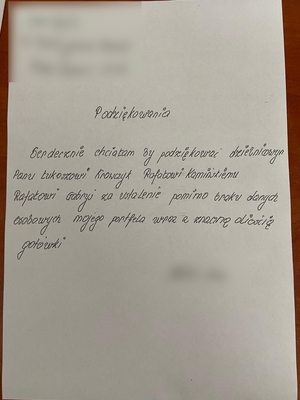 Podziękowania
Serdecznie chciałam by podziękować dzielnicowym
Panu Łukaszowi Krawczyk Rafałowi Kamińskiemu
Rafałowi za ustalenie pomimo braku danych
osobowych mojego portfela wraz z znaczną ilością
gotówki